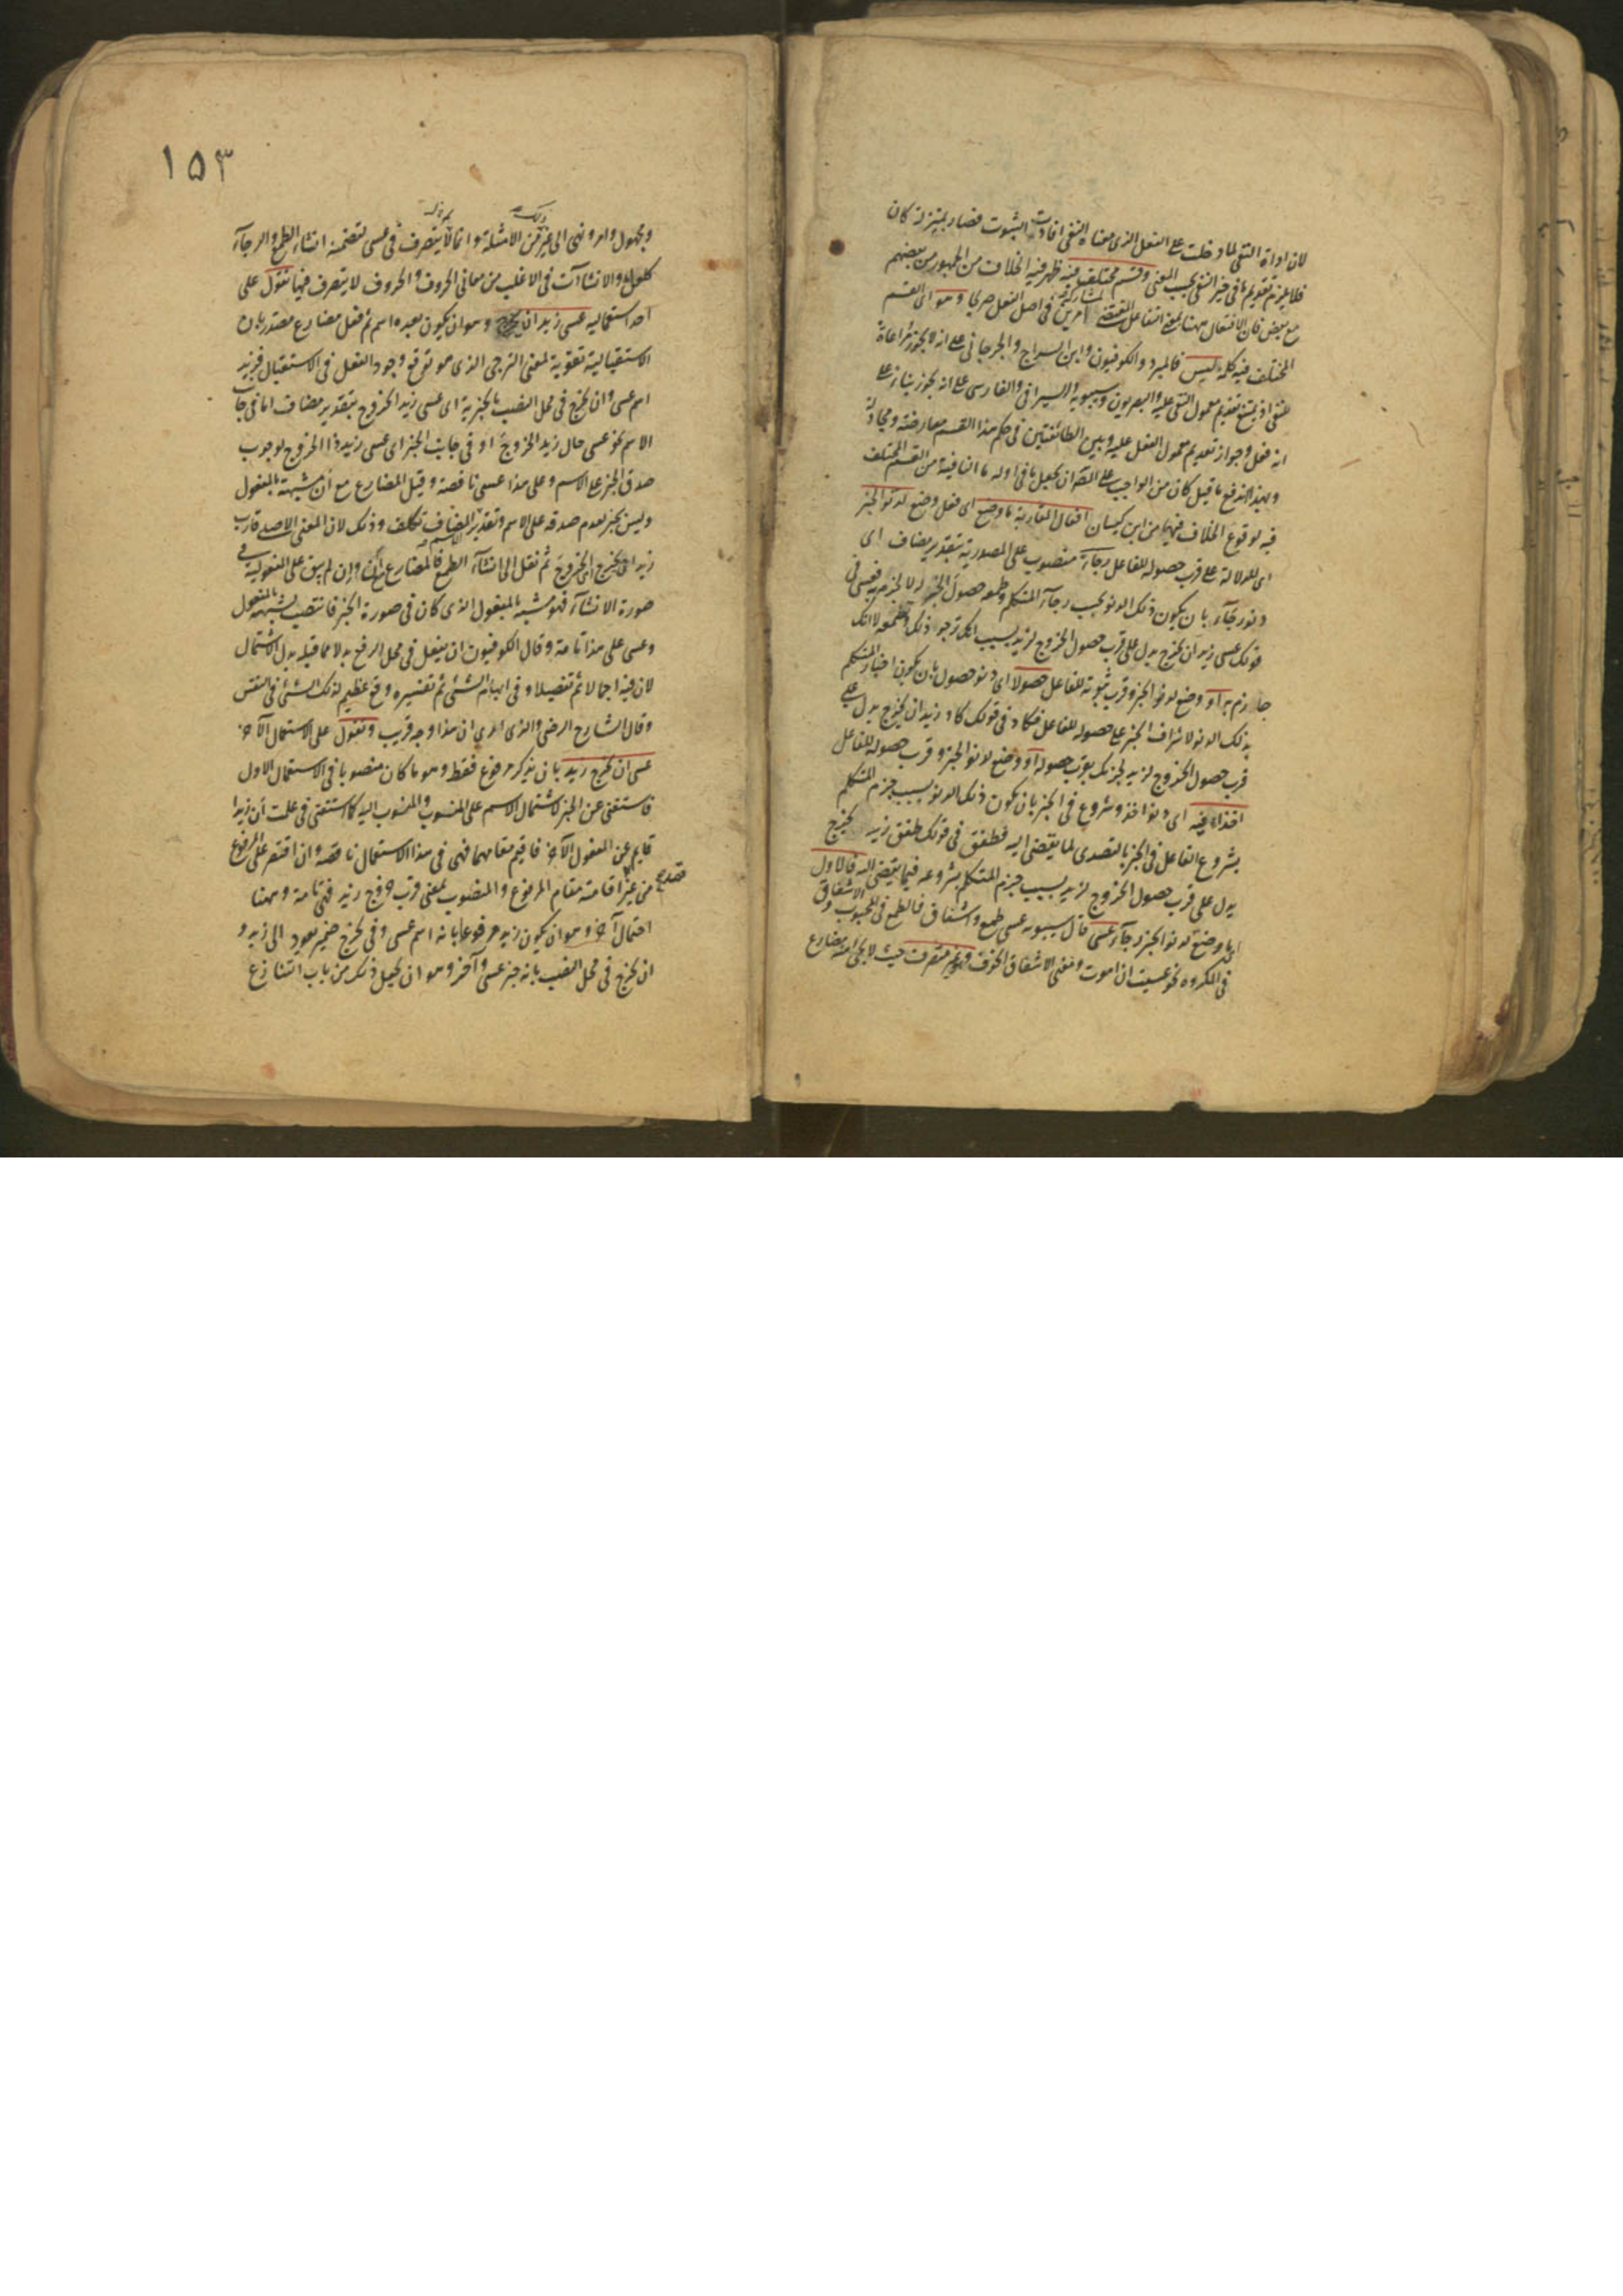 لان اداة النفى لما دخلت على الفعل الذى معناه النفى افادت الثبوت فصار بمنزلة كان
فلا يلزم تقديم ما فى حيز النفى بحسب المعنى وقسم مختلف فيه ظهر فيه الخلاف من الجمهور من بعضهم
مع بعض فان الافتعال ههنا بمعنى التفاعل المقتضى لمشاركة امرين فى اصل الفعل صريحا وهو اى القسم
المختلف فيه كلمة ليس فالمبرد والكوفيون وابن السراج والجرجانى على انه لا يجوز مراعاة
للنفى اذ يمتنع تقديم معمول النفى عليه والبصريون وسيبويه والسيرافى والفارسى على انه يجوز بناء على
انه فعل وجواز تقديم معمول الفعل عليه وبين الطائفتين فى حكم هذا القسم معارضة ومجادلة
وبهذا اندفع ما قيل كان من الواجب على المصنف ان يجعل ما فى اوله ما النافية من القسم المختلف
فيه لوقوع الخلاف فيها من ابن كيسان افعال المقاربة ما وضع اى فعل وضع لدنو الخبر
اى للدلالة على قرب حصوله للفاعل رجاء منصوب على المصدرية بتقدير مضاف اى
دنو رجاء بان يكون ذلك الدنو بحسب رجاء المتكلم وطمعه حصول الخبر له لا لجزمه به فعسى فى
قولك عسى زيد ان يخرج يدل على قرب حصول الخروج لزيد بسبب انك ترجو ذلك وتطمعه لا انك
جازم به او وضع لدنو الخبر وقرب ثبوته للفاعل حصولا اى دنو حصول بان يكون اخبار المتكلم
بذلك الدنو لاشراف الخبر على حصوله للفاعل فكاد فى قولك كاد زيد ان يخرج يدل على
قرب حصول الخروج لزيد لجزمك بقرب حصوله او وضع لدنو الخبر وقرب حصوله للفاعل
اخذا فيه اى دنو اخذ وشروع فى الخبر بان يكون ذلك الدنو بسبب جزم المتكلم
بشروع الفاعل فى الخبر بالتصدى لما يفضى اليه فطفق فى قولك طفق زيد يخرج
يدل على قرب حصول الخروج لزيد بسبب جزم المتكلم بشروعه فيما يفضى اليه فالاول
اى ما وضع لدنو الخبر رجاء عسى قال سيبويه عسى طمع واشفاق فالطمع فى المحبوب والاشفاق
فى المكروه نحو عسيت ان اموت ومعنى الاشفاق الخوف وهو غير متصرف حيث لا يجئ منه مضارع
١٥٣
ومجهول وامر ونهى الى غير ذلك من الامثلة وانما لم يتصرف فى عسى لتضمنه انشاء الطمع والرجاء
كلعل والانشاآت فى الاغلب من معانى الحروف والحروف لا يتصرف فيها تقول على
احد استعماليه عسى زيد ان يخرج وهو ان يكون بعده اسم ثم فعل مضارع مصدر بان
الاستقبالية تقوية لمعنى الترجى الذى هو توقع وجود الفعل فى الاستقبال فزيد
اسم عسى وان يخرج فى محل النصب بالخبرية اى عسى زيد الخروج بتقدير مضاف اما فى جانب
الاسم نحو عسى حال زيد الخروج او فى جانب الخبر اى عسى زيد ذا الخروج لوجوب
صدق الخبر على الاسم وعلى هذا عسى ناقصة وقيل المضارع مع ان مشبهة بالمفعول
وليس بخبر لعدم صدقه على الاسم وتقدير المضاف تكلف وذلك لان المعنى الاصلى قارب
زيد ان يخرج اى الخروج ثم نقل الى انشاء الطمع فالمضارع مع ان وان لم يبق على المفعولية فى
صورة الانشاء فهو مشبه بالمفعول الذى كان فى صورة الخبر فانتصب لشبهه بالمفعول
وعسى على هذا تامة وقال الكوفيون ان يفعل فى محل الرفع بدلا مما قبله بدل الاشتمال
لان فيه اجمالا ثم تفصيلا وفى ابهام الشئ ثم تفسيره وقع عظيم لذلك الشئ فى النفس
وقال الشارح الرضى والذى ارى ان هذا وجه قريب وتقول على الاستعمال الآخر
عسى ان يخرج زيد بان يذكر مرفوع فقط وهو ما كان منصوبا فى الاستعمال الاول
فاستغنى عن الخبر لاشتمال الاسم على المنسوب والمنسوب اليه كما استغنى فى علمت ان زيدا
قايم عن المفعول الآخر فاقيم مقامهما فهى فى هذا الاستعمال ناقصة وان اقتصر على المرفوع
من غير قصد اقامته مقام المرفوع والمنصوب بمعنى قرب خروج زيد فهى تامة وههنا
احتمال آخر وهو ان يكون زيد مرفوعا بانه اسم عسى وفى يخرج ضمير يعود الى زيد و
ان يخرج فى محل النصب بانه خبر عسى وآخر وهو ان يجعل ذلك من باب التنازع